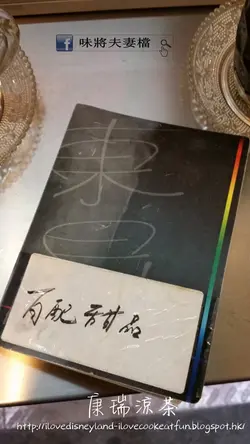 味將夫妻檔
東
百配 甜品
康瑞涼茶
http://ilovedisneyland-ilovecookeatfun.blogspot.hk/